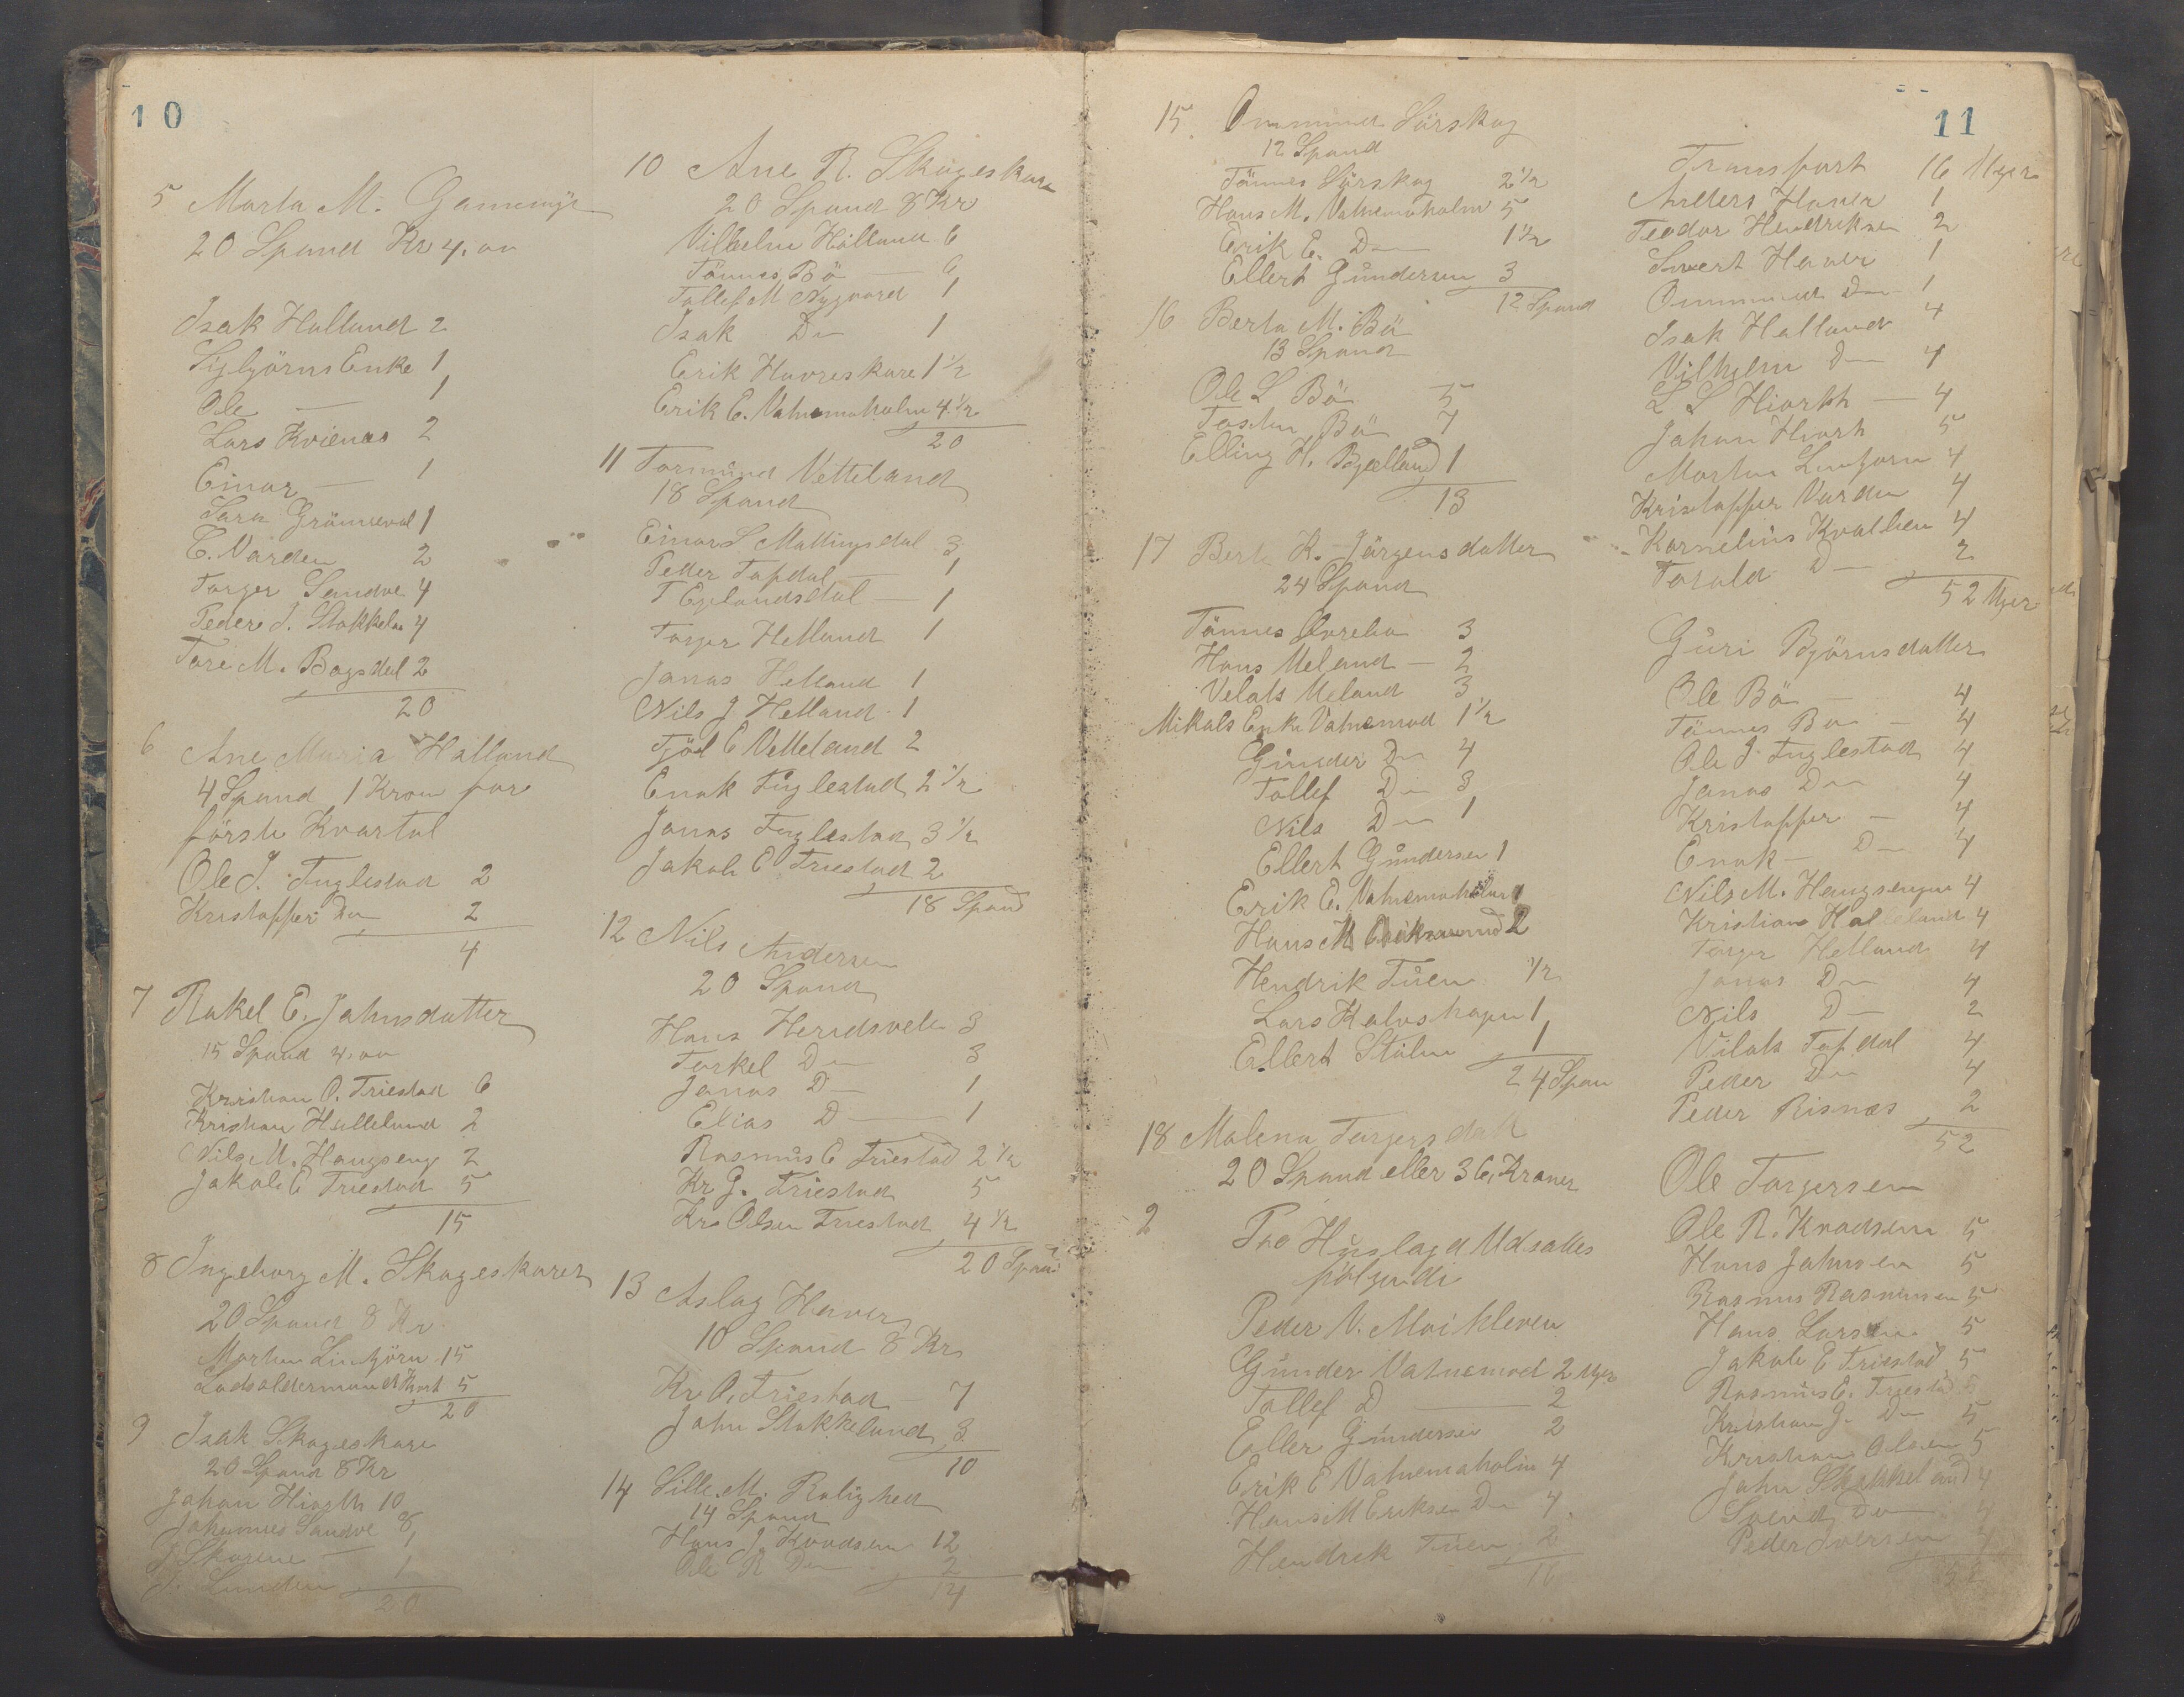 10
5 Marta M. Gamemyr
20 Spand Kr 4,00
Isak Halland 2
Sigbjörns Enke 1
Ole — 1
Lars Kvienes 2
Einar — 1
Sara Grönneval 1
C. Varden 2
Torger Sandve 4
Peder J. Stokkelan 4
Tore M. Bogsdal 2
20
6 Ane Maria Halland
4 Spand 1 Krone for
förste Kvartal
Ole J. Fuglestad 2
Kristoffer Do 2
4
7 Rakel E. Johnsdatter
15 Spand 4,00
Kristian O. Friestad 6
Kristian Helleland 2
Nils M. Haugseng 2
Jakob E Friestad 5
15
8 Ingeborg M. Skogeskaret
20 Spand 8 Kr
Morten Lintjörn 15
Hiort 5
20
9 Isak Skogeskare
20 Spand 8 Kr
Johan Hiorth 10
Johannes Sandve 8
J Skarene — 1
J. Lunden 1
20
10 Ane R. Skogeskare
20 Spand 8 Kr
Vilhelm Hålland 6
Tönnes Bö — 6
Tollef M Nygaard 1
Isak Do 1
Erik Havreskare 1 1/2
Erik E. Vatnemoholm 4 1/2
20
11 Tormund Vetteland
18 Spand
Einar S Mattingsdal 3
Peder Tofdal — 1
T Egelandsdal — 1
Torger Hetland 1
Jonas Hetland 1
Nils J Hetland 1
Fjöl E Vetteland 2
Enok Fuglestad 2 1/2
Jonas Fuglestad 3 1/2
Jakob E Friestad 2
18 Spand
12 Nils Andersen
20 Spand
Hans Heredsvela 3
Torkel Do 3
Jonas D— 1
Elias D— 1
Rasmus E Friestad 2 1/2
Kr J. Friestad 5
Kr. Olsen Friestad 4 1/2
20 Spand
13 Aslag Haver
10 Spand 8 Kr
Kr O. Friestad — 7
John Stokkeland 3
10
14 Sille M. Rolighed
14 Spand
Hans J. Knudsen 12
Ole R Do 2
14
11
15 Ommund Sörskog
12 Spand
Tönnes Sörskog 2 1/2
Hans M. Vatnemoholm 5
Erik E. Do 1 1/2
Ellert Gundersen 3
12 Spand
16 Berta M. Bö
13 Spand
Ole L Bö 5
Tosten Bö 7
Elling H. Bjelland 1
13
17 Berta K. Jörgensdatter
24 Spand
Tönnes Övrebo 3
Hans Meland — 2
Velaks Meland 3
Mikals Enke Vatnemod 1 1/2
Gunder Do 4
Tollef Do 3
Nils Do 1
Ellert Gundersen 1
Erik E. Vatnemoholm 1
Hans M 2
Hendrik Tuen 1/2
Lars Kalvshagen 1
Ellert Stölen 1
24 Span
18 Malena Torgersdatt
20 Spand eller 36, Kroner
2 Paa Huslagd Udsattes
fölgende
Peder V. Moikleven
Gunder Vatnemod 2 Uger
Tollef D — 2
Eller Gundersen 2
Erik E Vatnemoholm 4
Hans M Eriksen Do 4
Hendrek Tuen 2
16
Transport 16 Uger
Anders Haver 1
Teodor Hendriksen 2
Sivert Haver 1
Ommund Do 1
Isak Halland 4
Vilhelm Do 4
L S Hiorth — 4
Johan Hiorth 5
Morten Lintjorn 4
Kristoffer Varden 4
Kornelius Kvalben 4
Torald D— 2
52 Uger
Guri Björnsdatter
Ole Bö — 4
Tönnes Bö — 4
Ole J. Fuglestad 4
Jonas Do 4
Kristoffer — 4
Enok — Do 4
Nils M. Haugsengen 4
Kristian Halleland 4
Torger Hetland 4
Jonas Do 4
Nils D— 2
Vilaks Tofdal 4
Peder Do 4
Peder Risnæs 2
52
Ole Torgersen
Ole R. Knudsen 5
Hans Johnsen 5
Rasmus Rasmusen 5
Hans Larsen 5
Jakob E Friestad 5
Rasmus E. Friestad 5
Kristian J. Do 5
Kristian Olsen 5
John Stokkeland 4
Svend Do 4
Peder Iversen 4
52